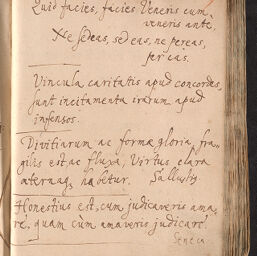 Quid facies, facies Veneris cum
veneris ante,
Ne sedeas, sed eas, ne pereas,
per eas.
Vincula caritatis apud concordes,
sunt incitamenta irarum apud
infensos.
Divitiarum ac formæ gloria, fra-
gilis est ac fluxa, Virtus clara
æternaq; habetur. Sallustj
Honestius est, cum judicaveris ama-
re, quam cùm amaveris judicare.
Seneca